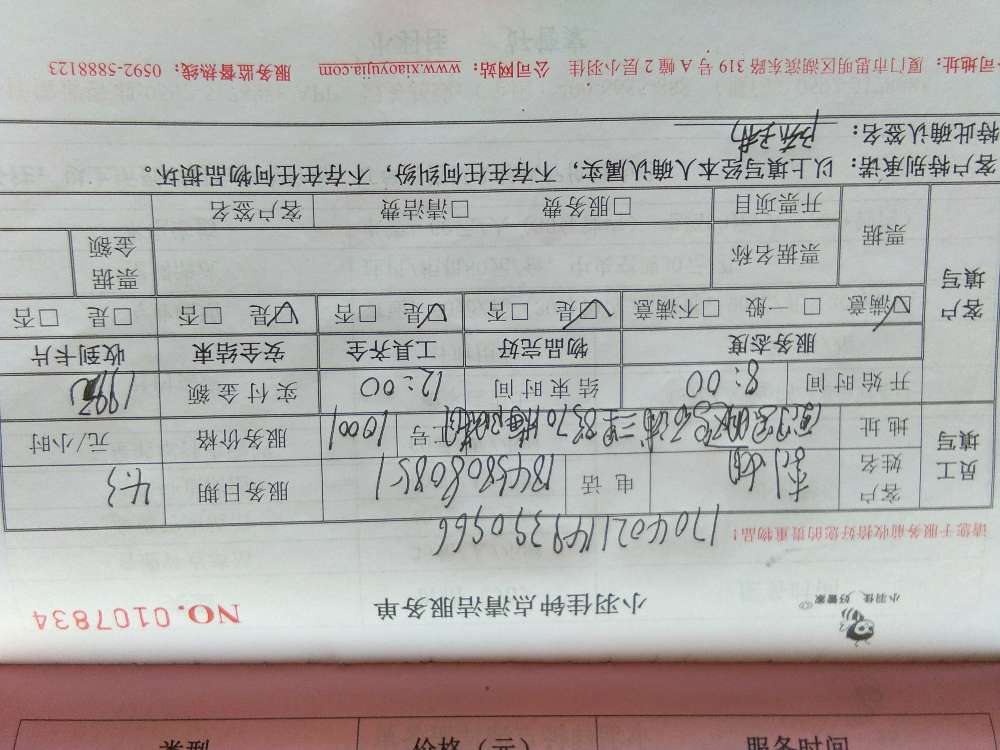 小羽佳 好管家
小羽佳钟点清洁服务单
NO.0107834
1704021149390566
请您于服务前收拾好您的贵重物品！
员工填写
客户姓名
电话
18458080851
服务日期
4.3
地址
工号
10001
服务价格
元/小时
开始时间
8:00
结束时间
12:00
实付金额
客户填写
服务态度
物品完好
工具齐全
安全结束
收到卡片
☑满意 □一般 □不满意
☑是 □否
☑是 □否
☑是 □否
□是 □否
票据
票据名称
票据金额
开票项目
□服务费 □清洁费
客户签名
客户特别承诺：以上填写经本人确认属实，不存在任何纠纷，不存在任何物品损坏。
特此确认签名：
公司地址：厦门市思明区湖滨东路 319 号 A 幢 2 层小羽佳 公司网站：www.xiaoyujia.com 服务监督热线：0592-5888123
类型
价格（元）
服务时间